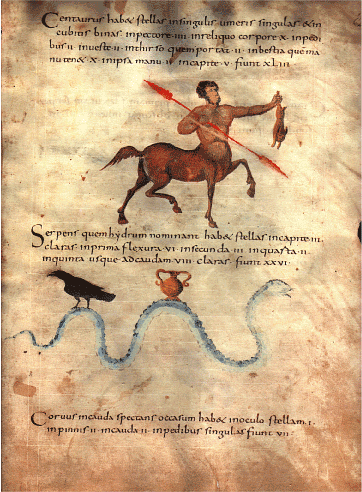 Centaurus hab& stellas insingulis umeris singulas & in
cubitis binas inpectore · IIII · inreliquo corpore X · inpedi
bus · II · investe · II · inthirso quem portat · II · inbestia quem a
nu ten& · X · inipsa manu · II · incapite · V · fiunt XLIII
Serpens quem hydrum nominant hab& stellas incapite · III ·
claras · inprima flexura · VI · insecunda · III · inquarta · II ·
inquinta usque adcaudam · VIII · claras · fiunt XXVI ·
Corvus incauda spectans occasum hab& inoculo stellam · I ·
inpinnis · II · incauda · II · inpedibus singulas fiunt VII ·